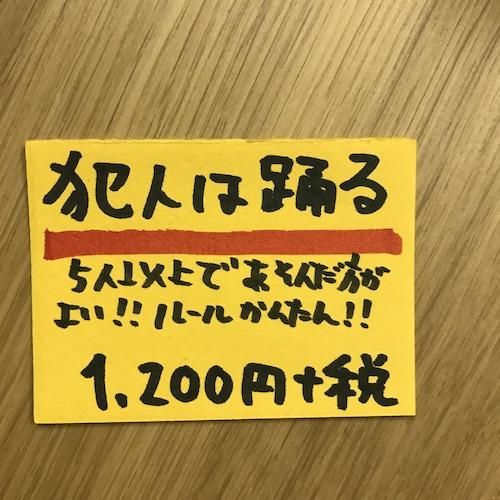 犯人は踊る
5人以上であそんだ方が
よい!!ルールかんたん!!
1,200円+税